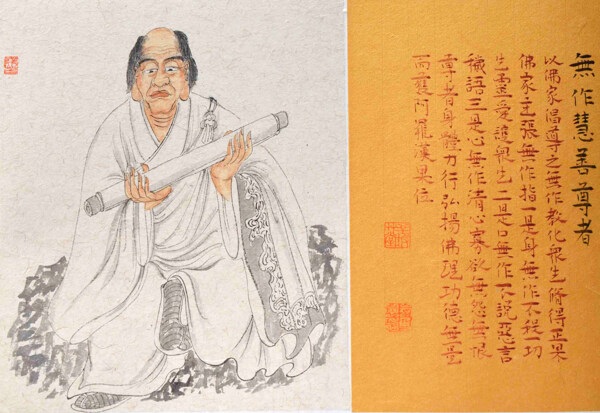 無作慧善尊者
以佛家倡導之無作教化衆生脩得正果
佛家主張無作指一是身無作不殺一切
生靈愛護衆生二是口無作不說惡言
穢語三是心無作清心寡欲無怨無恨
尊者身體力行弘揚佛理功德無量
而獲阿羅漢果位